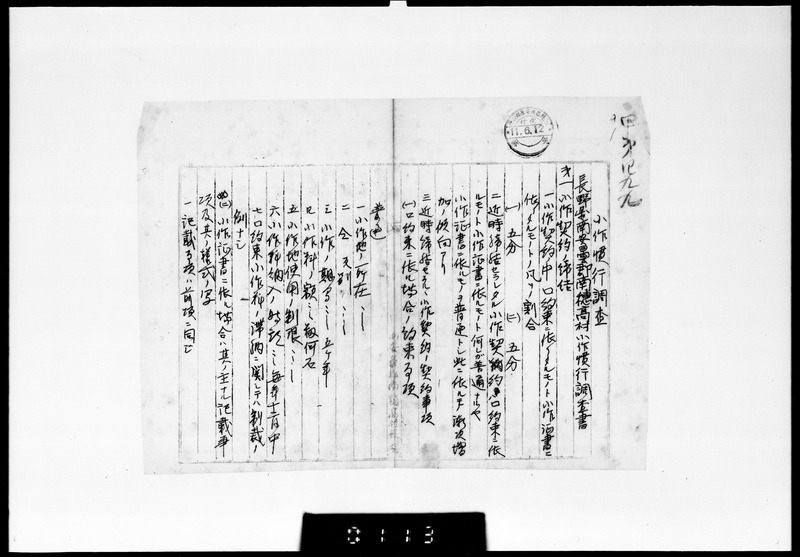 四第四九九
11.6.12
小作慣行調査
長野県南安曇郡南穂高村小作慣行調査書
第一 小作契約ノ締結
一 小作契約中口約束ニ依ルモノト小作証書ニ
依ルモノトノ凡ソノ割合
(一) 五分 (二) 五分
二 近時締結セラレタル小作契約ハ口約束ニ依
ルモノト小作証書ニ依ルモノト何レガ普通ナルヤ
小作証書ニ依ルモノヲ普通トシ此ニ依ルモノ漸次増
加ノ傾向アリ
三 近時締結セラレタル小作契約ノ契約事項
(一) 口約束ニ依ル場合ノ約束事項
普通
一 小作地ノ所在
二 仝 反別
三 小作ノ期間 五ケ年
四 小作料ノ額 籾何石
五 小作地使用ノ制限
六 小作料納入ノ時期 毎年十二月中
七 口約束小作料ノ滞納ニ関シテハ制裁ノ
例ナシ
(二) 小作証書ニ依ル場合ハ其ノ主ナル記載事
項及其ノ様式ノ写
一 記載事項ハ前項ニ同じ
0113